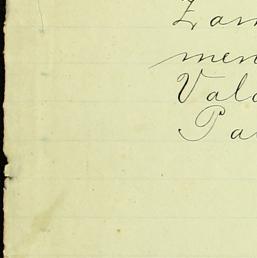 Zam
men
Vala
Pa